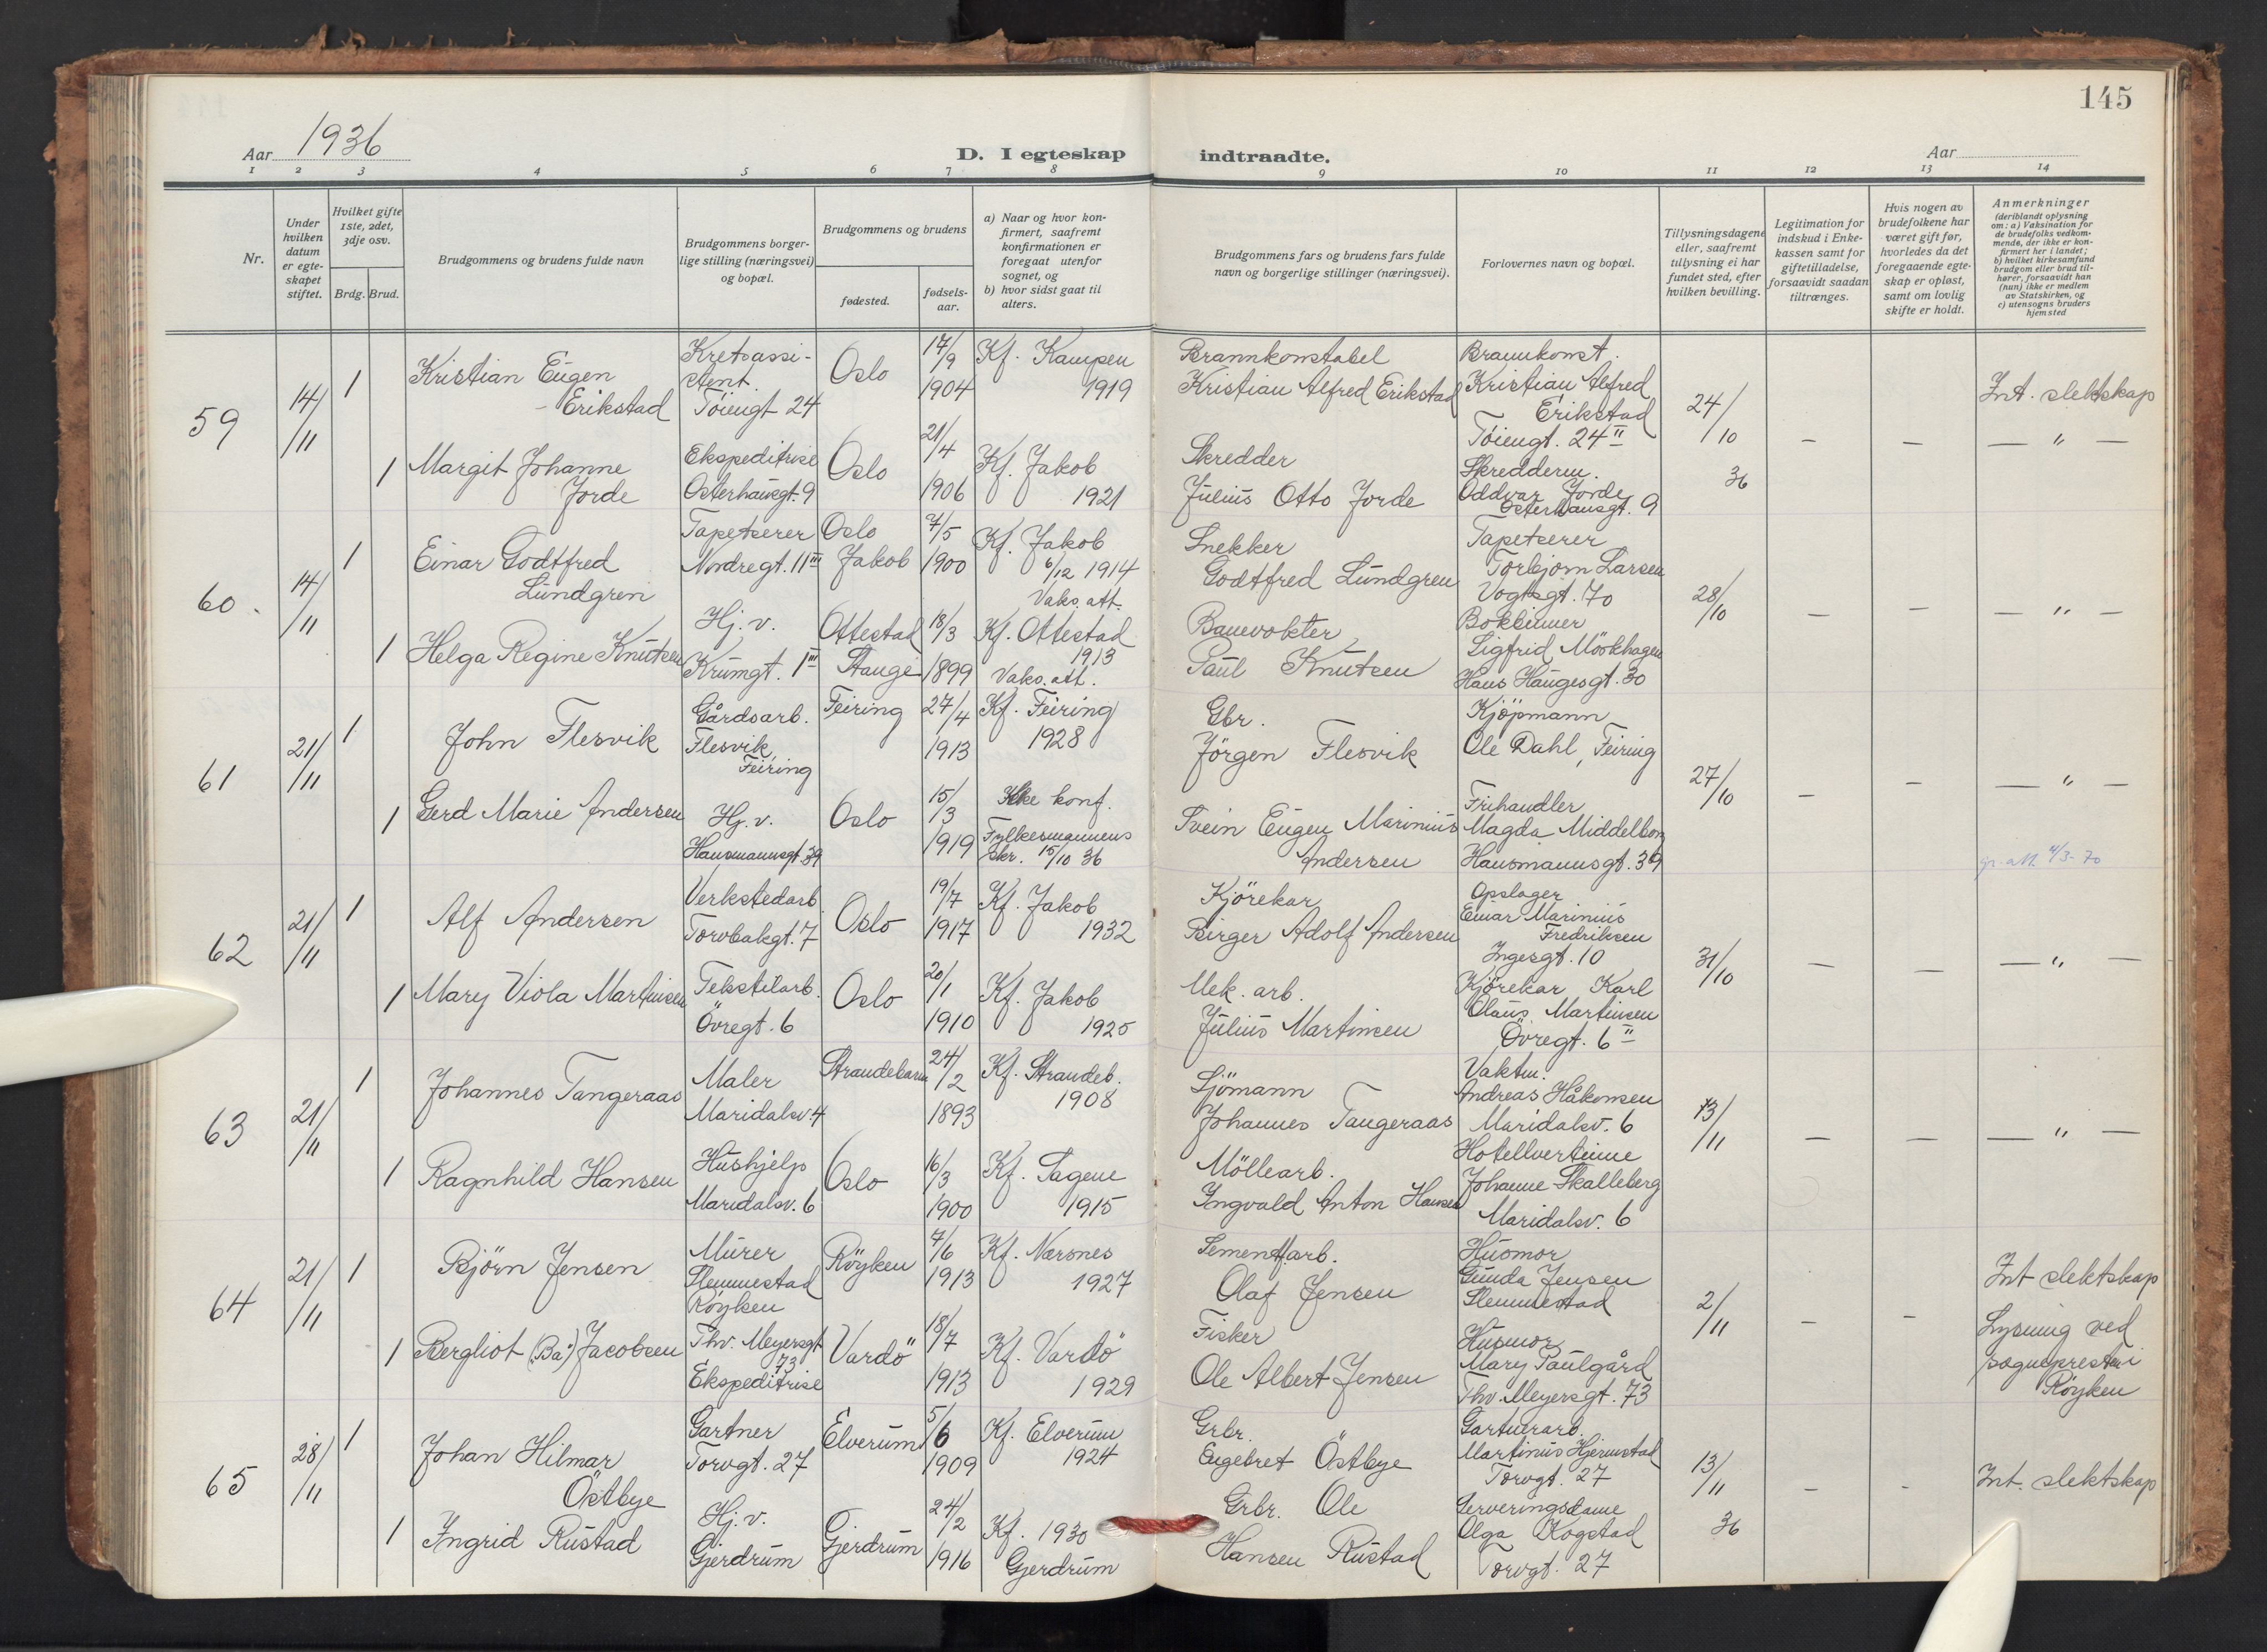 145
Aar 1936
D. I egteskap indtraadte.
Aar
1 2 3 4 5 6 7 8 9 10 11 12 13 14
Nr.
Under hvilken datum er egteskapet stiftet.
Hvilket gifte 1ste, 2det, 3dje osv.
Brdg. Brud.
Brudgommens og brudens fulde navn
Brudgommens borgerlige stilling (næringsvei) og bopæl.
Brudgommens og brudens
fødested.
fødselsaar.
a) Naar og hvor konfirmert, saafremt konfirmationen er foregaat utenfor sognet, og
b) hvor sidst gaat til alters.
Brudgommens fars og brudens fars fulde navn og borgerlige stillinger (næringsvei).
Forlovernes navn og bopæl.
Tillysningsdagene eller, saafremt tillysning ei har fundet sted, efter hvilken bevilling.
Legitimation for indskud i Enkekassen samt for giftetilladelse, forsaavidt saadan tiltrænges.
Hvis nogen av brudefolkene har været gift før, hvorledes da det foregaaende egteskap er opløst, samt om lovlig skifte er holdt.
Anmerkninger
(deriblandt oplysning om: a) Vaksination for de brudefolks vedkommende, der ikke er konfirmert her i landet;
b) hvilket kirkesamfund brudgom eller brud tilhører, forsaavidt han (hun) ikke er medlem av Statskirken, og
c) utensogns bruders hjemsted
59 14/11 1 Kristian Eugen Erikstad
Kretsassistent. Töiengt 24
Oslo 17/9 1904
Kf. Kampen 1919
Brannkonstabel
Kristian Alfred Erikstad
Brannkonst. Kristian Alfred Erikstad
Töiengt. 24 II
24/10 36
Int. slektskap
1 Margit Johanne Jorde
Ekspeditrise
Osterhausgt. 9
Oslo 21/4 1906
Kf. Jakob 1921
Skredder
Julius Otto Jorde
Skredderm.
Oddvar Jorde
Osterhausgt. 9
— — — " —
60. 14/11 1 Einar Godtfred Lundgren
Tapetserer
Nordregt. 11 III
Oslo Jakob 7/5 1900
Kf. Jakob 6/12 1914
Vaks. att.
Snekker
Godtfred Lundgren
Tapetserer
Torbjorn Larsen
Vogtsgt. 70
28/10 — — — " —
1 Helga Regine Knutsen
Hj. v.
Krumgt. 1 III
Ottestad Stange 18/3 1899
Kf. Ottestad 1913
Vaks. att.
Banevokter
Paul Knutsen
Bokbinner
Sigfrid Mörkhagen
Hans Haugesgt. 30
61 21/11 1 John Flesvik
Gårdsarb.
Flesvik, Feiring
Feiring 27/4 1913
Kf. Feiring 1928
Gbr.
Jörgen Flesvik
Kjöpmann
Ole Dahl, Feiring
27/10 — — — " —
1 Gerd Marie Andersen
Hj. v.
Hausmannsgt. 39
Oslo 15/3 1919
Ikke konf.
Fylkesmannens skr. 15/10 36
Svein Eugen Marinius Andersen
Frihandler
Magda Middelborg
Hausmannsgt. 39
gr. att. 4/3-70
62 21/11 1 Alf Andersen
Verkstedarb.
Torvbakgt. 7
Oslo 19/7 1917
Kf. Jakob 1932
Kjörekar
Birger Adolf Andersen
Opslager
Einar Marinius Fredriksen
Ingesgt. 10
31/10 — — — " —
1 Mary Viola Martinsen
Tekstilarb.
Övregt. 6
Oslo 20/1 1910
Kf. Jakob 1925
Mek. arb.
Julius Martinsen
Kjörekar Karl Olaus Martinsen
Övregt. 6 II
63 21/11 1 Johannes Tangeraas
Maler
Maridalsv. 4
Strandebarm 24/2 1893
Kf. Strandeb. 1908
Sjömann
Johannes Tangeraas
Vaktm.
Andreas Håkonsen
Maridalsv. 6
13/11 — — — " —
1 Ragnhild Hansen
Hushjelp
Maridalsv. 6
Oslo 16/3 1900
Kf. Sagene 1915
Möllearb.
Ingvald Anton Hansen
Hotellvertinne
Johanne Skalleberg
Maridalsv. 6
64 21/11 1 Björn Jensen
Murer
Slemmestad Röyken
Röyken 7/6 1913
Kf. Nærsnes 1927
Sementarb.
Olaf Jensen
Husmor
Gunda Jensen
Slemmestad
2/11 — —
Int slektskap
Lysning ved sognepresten i Röyken
1 Bergliot (Ba) Jacobsen
Thv. Meyersgt 73.
Ekspeditrise
Vardö 18/7 1913
Kf. Vardö 1929
Fisker
Ole Albert Jensen
Husmor
Mary Paulgård
Thv. Meyersgt. 73
65 28/11 1 Johan Hilmar Östbye
Gartner
Torvgt. 27
Elverum 5/6 1909
Kf. Elverum 1924
Grbr.
Engebret Östbye
Gartnerarb.
Martinus Hjermstad
Torvgt. 27
13/11 36 — —
Int. slektskap
1 Ingrid Rustad
Hj. v.
Gjerdrum
Gjerdrum 24/2 1916
Kf. 1930
Gjerdrum
Grbr. Ole Hansen Rustad
Serveringsdame
Olga Kogstad
Torvgt. 27